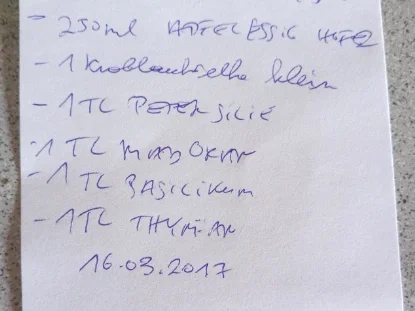 - 250ml APFELESSIG HEFE
- 1 Knoblauchzehe klein
- 1TL PETERSILIE
- 1 TL MAJORAN
- 1 TL BASILIKUM
- 1TL THYMIAN
16.03.2017